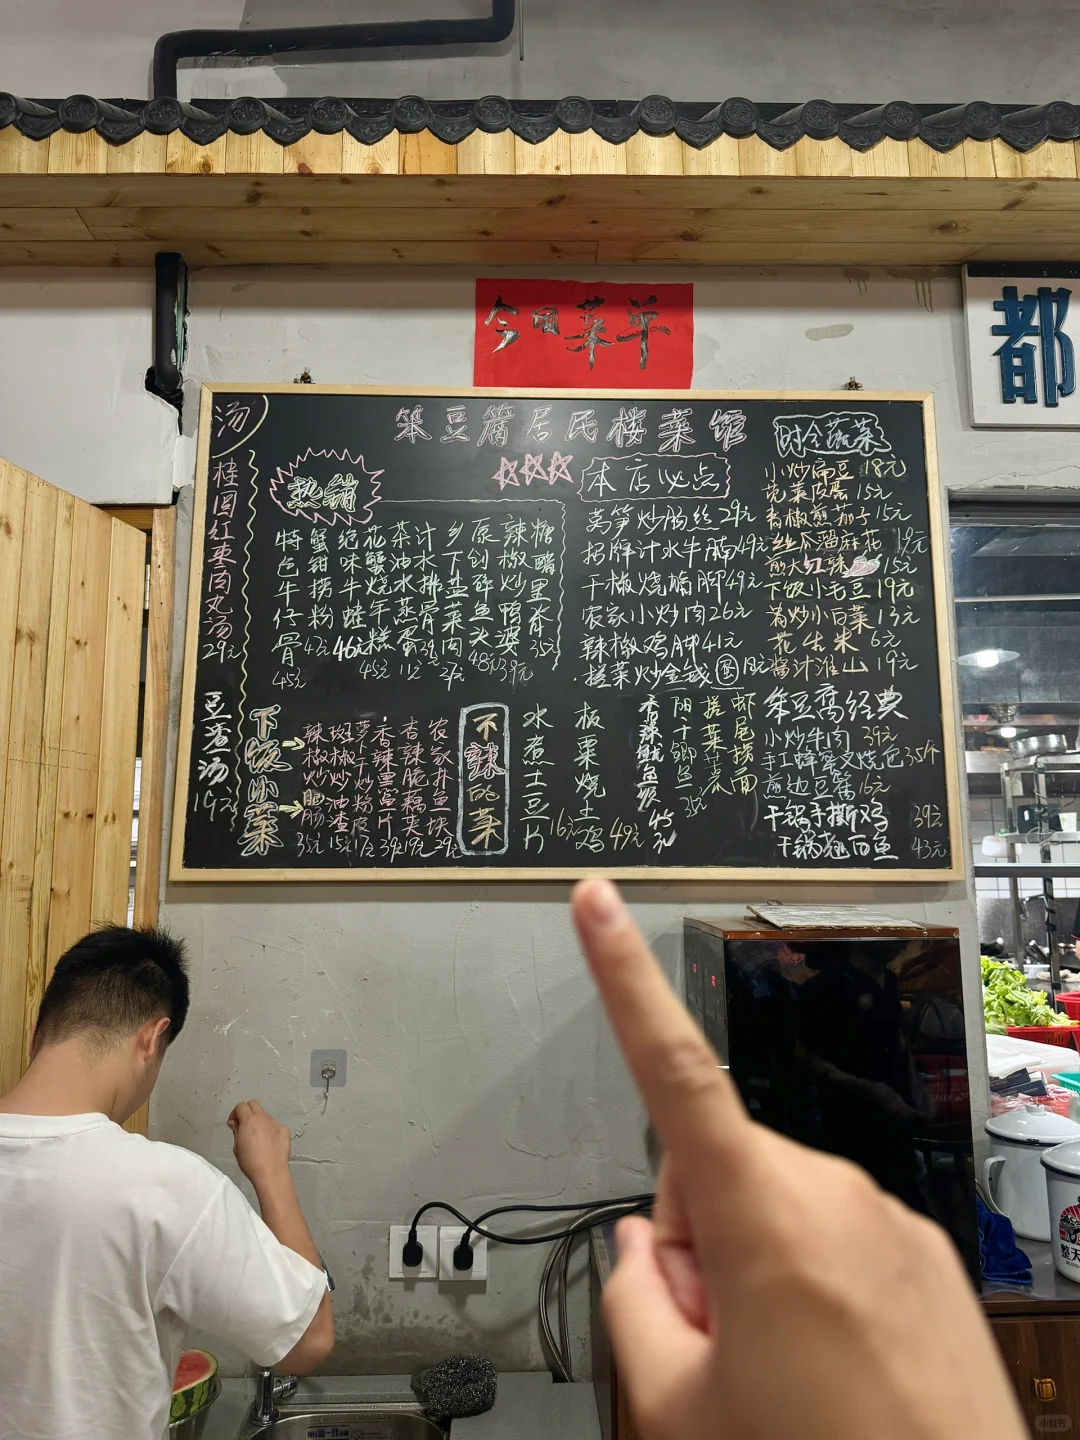 今日菜单
都
笨豆腐居民楼菜馆
汤
桂圆红枣肉丸汤 29元
豆渣汤 19元
热销
特色牛仔骨 45元
蟹钳捞粉 43元
绝味牛蛙 46元
花蟹烧年糕 45元
茶油水蒸蛋 11元
汁水排骨 39元
乡下盐菜肉 37元
原创碎鱼头 48元
辣椒炒鸭婆 39元
糖醋里脊 35元
本店必点
莴笋炒肠丝 29元
招牌汁水牛腩 49元
干椒烧猪脚 49元
农家小炒肉 26元
辣椒鸡脚 41元
搓菜炒金钱蛋 18元
时令蔬菜
小炒扁豆 18元
苋菜皮蛋 15元
青椒煎茄子 15元
丝瓜溜麻花 19元
煎大红辣 15元
下饭小毛豆 19元
清炒小白菜 13元
花生米 6元
酱汁淮山 19元
笨豆腐经典
小炒牛肉 39元
手工蜂蜜叉烧包 3.5/个
煎边豆腐 16元
干锅手撕鸡 39元
干锅翘白鱼 43元
下饭小菜
辣椒炒腊肠 35元
斑椒炒油渣 15元
萝卜干炒粉皮 17元
香辣里脊片 39元
香辣脆藕夹 19元
农家炸鱼块 29元
不辣的菜
水煮土豆片 16元
板栗烧土鸡 49元
香辣鱿鱼须 45元
阳干鲫鱼 35元
搓菜芋
虾尾捞面
整天
小红书